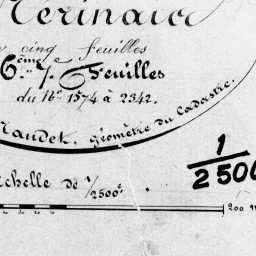 en cinq feuilles
6ème Feuilles
du No 1574 à 2342.
Naudet, Géomètre du Cadastre.
1/2500
Echelle de 1/2500e.
200 m